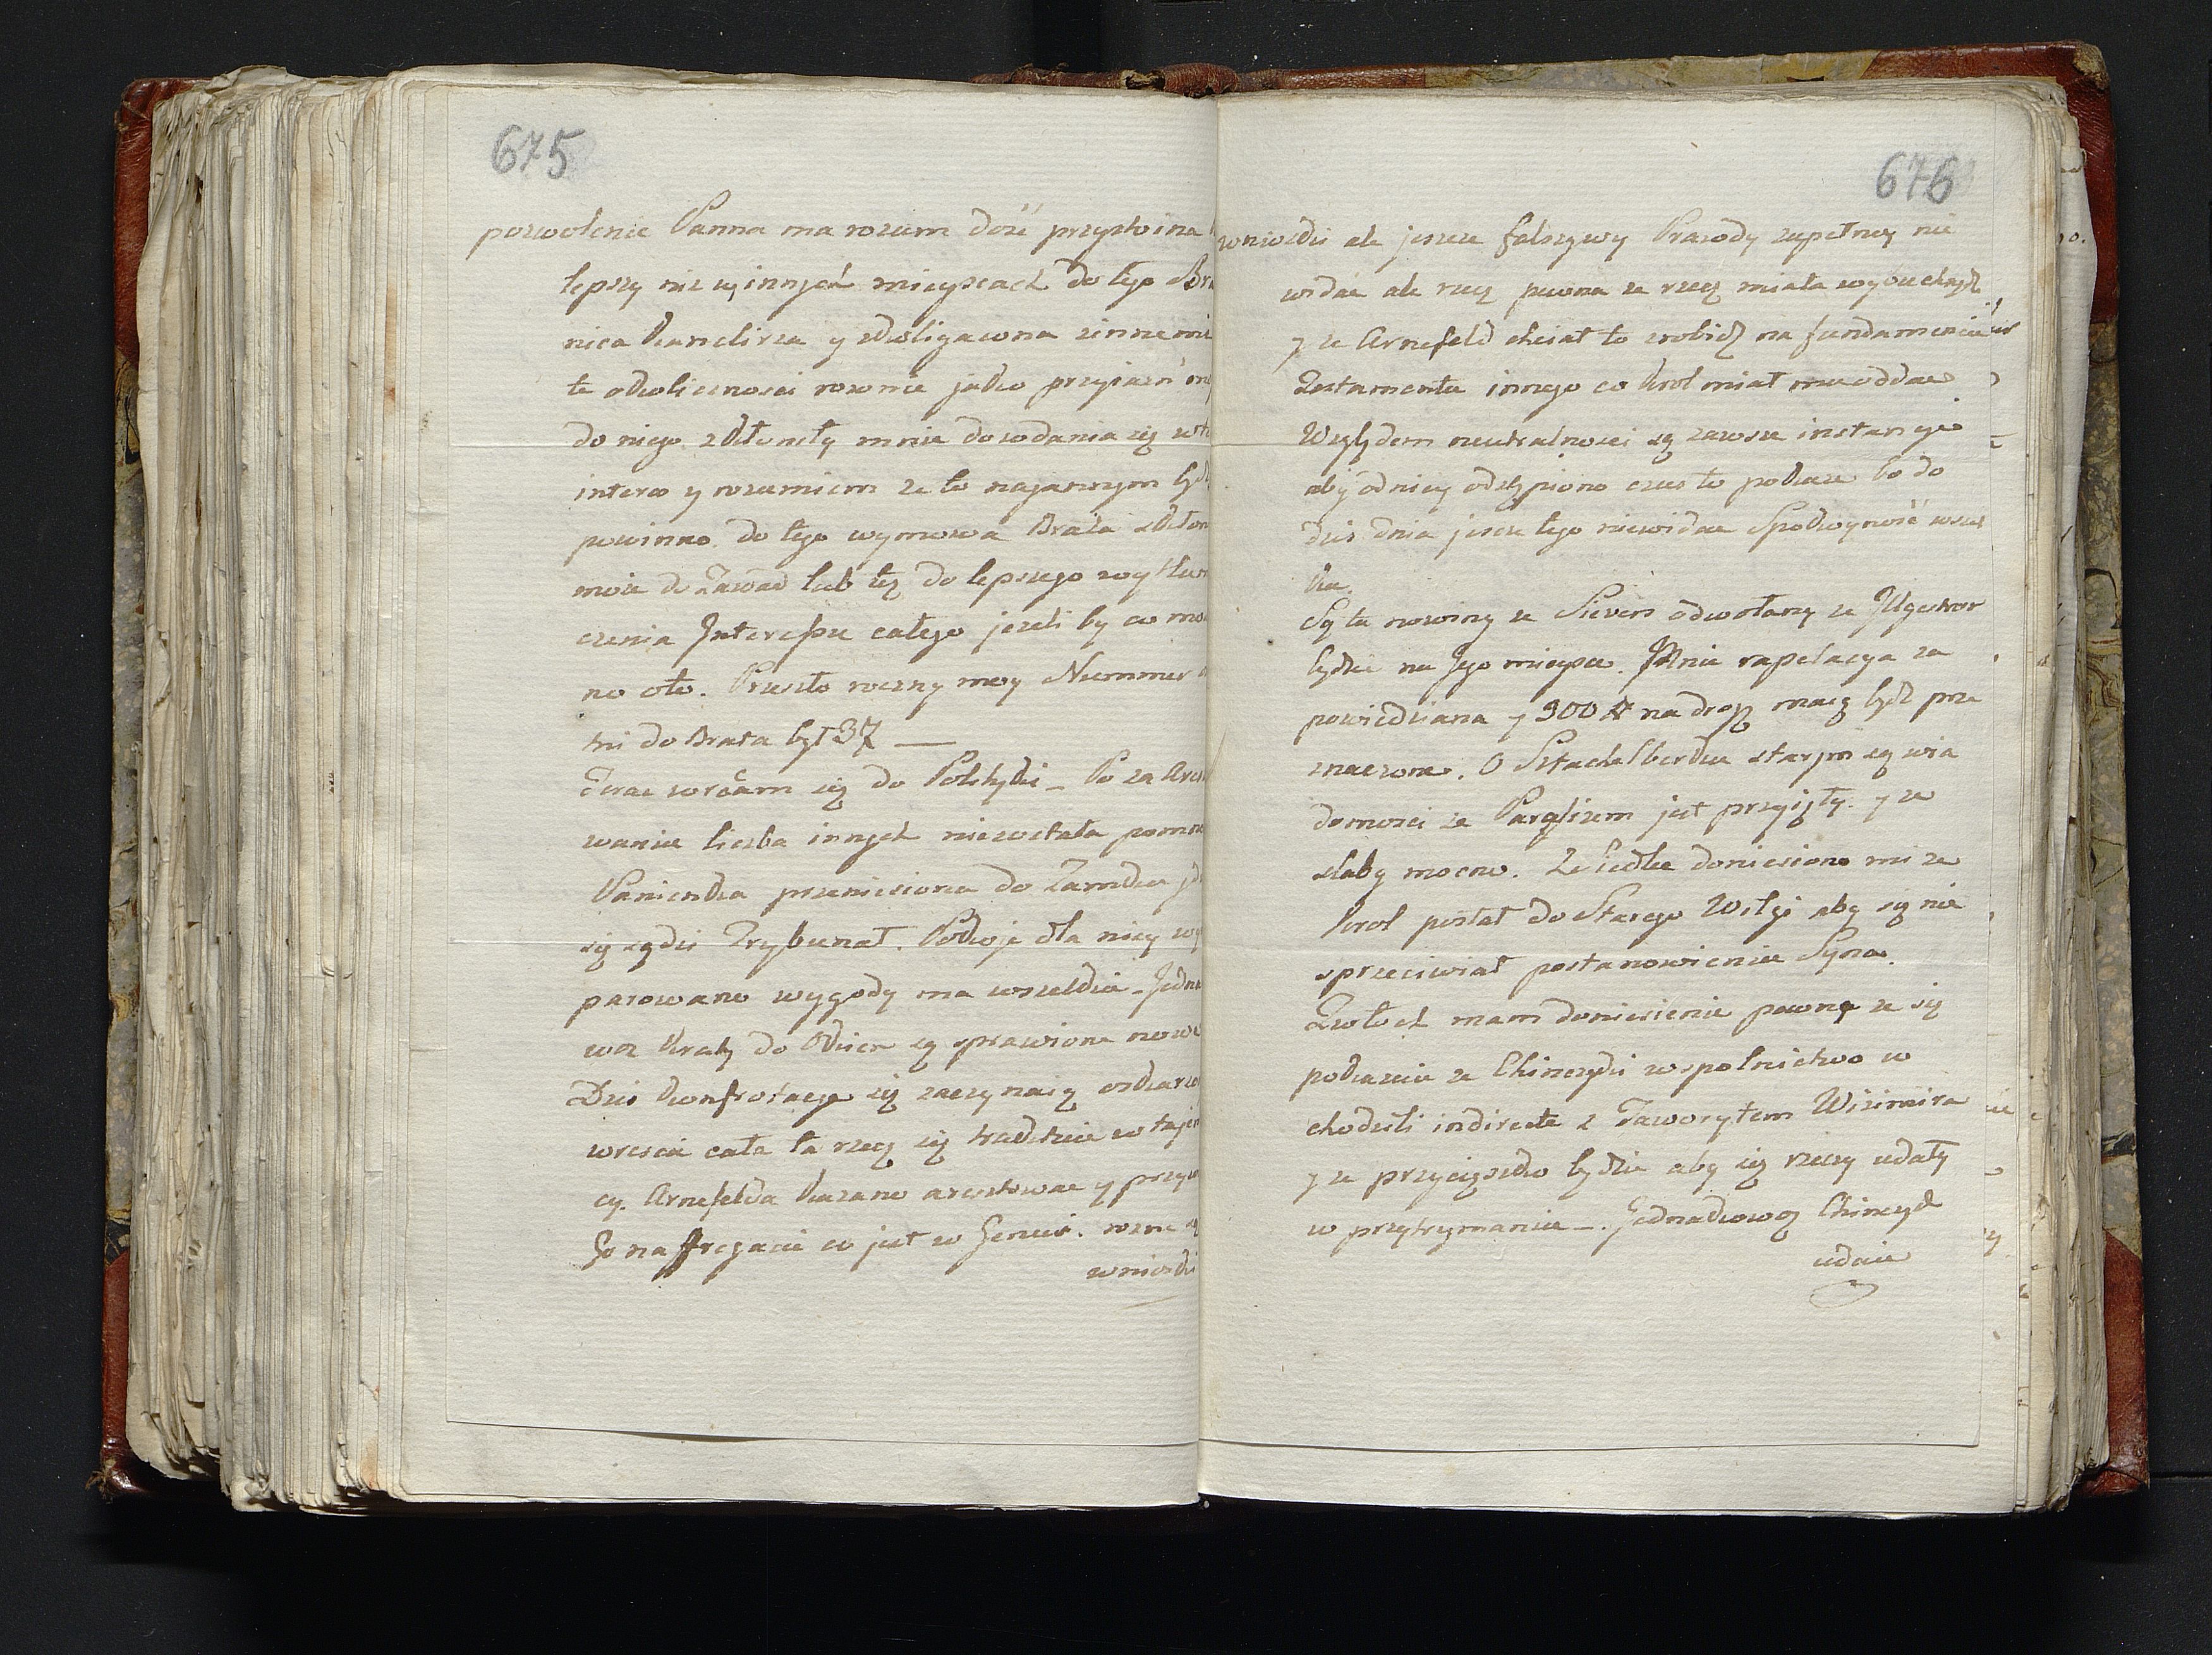 675
pozwolenie Panna ma rozum dosć przystoina
lepszy niz w innych mieyscach do tego Bra
nica Kanclirza y skoligacona zinnemi
te okolicznosci rownie jako przyiazń
do niego skłoniły mnie do wdania się wte
interes y rozumiem ze to najjannym bydz
powinno do tego wymowa Brata skłon
moie do Zawad lub tez do lepszego wytlum
czenia Interessu całego jezeli by co mo
no oto. Przeszło roczny moy Nummer
tni do Brata był 37 —
Teraz wrócam się do Polityki – Po za Arest
waniu liczba innych niezostała pomno
Panienka przeniesiona do Zamku
się sądzi Trybunał. Pokoje dla niey wy
parowane wygody ma wszelkie – Jedna
woz Kraty do Okien są sprawione nowe
Dzis Konfrotacye się zaczynaią oskarzo
wrescie cała ta rzecz się traktuie w tajem
cy. Arnefelda Kazano aresztowac y przyw
Go na fregacie co jest w Genui. rozne są
wnioski
676
wnioski ale jeszcze falszywy Prawdy zupełney nie
widać ale rzecz pewna ze rzecz miała wybuchnąć
y ze Arnefeld chciał to zrobić na fundamencie
Testamentu innego co Krol miał mu oddac
Względem neutralnosci są zawsze instancyie
aby odniey odstąpiono czas to pokaze Co do
dzis dnia jescze tego niewidac Spokoynosć wszel
ka.
Są tu nowiny ze Sievers odwołany ze Jlgestrom
bydzie na Jego mieysce. Mnie rapelacya za
powiedziana y 300 # na drogę maią bydz prze
znaczone. O Sztackelberku starym są wia
domosci ze Paraliżem jest przyięty. y ze
słaby mocno. Ze Siedlec doniesiono mi ze
Krol posłał do Starego Wilgi aby się nie
sprzeciwiał postanowieniu Syna.
Zwłoch mam doniesienie pewne ze się
pokazuie ze Chineyski wspolnictwo w
chodzili indirecte z Faworytem Wizimira
y ze przyciązko bydzie aby się rzeczy udały
w przytrzymaniu –. Jednakowoz Chineyk
udaie